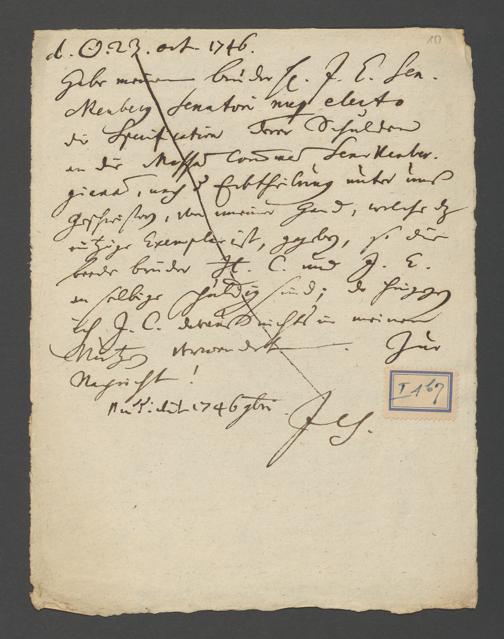 d. ☉. 23. oct. 1746.
Habe meinem bruder H. J. E. Sen-
ckenberg Senatori nup electo
die Specification derer Schulden
an die Massa Senckenber-
giana, nach d Erbtheilung unter uns
geschwistern, von meiner Hand, welche dz
einzige Exemplar ist, gegeben, so die
beede bruder H. C. und J. E.
an selbige schuldig sind; da hingegen
ich J. C. daraus nichts in meinen
Nutzen verwendet. Zur
Nachricht!
1746
JCS.
I 167